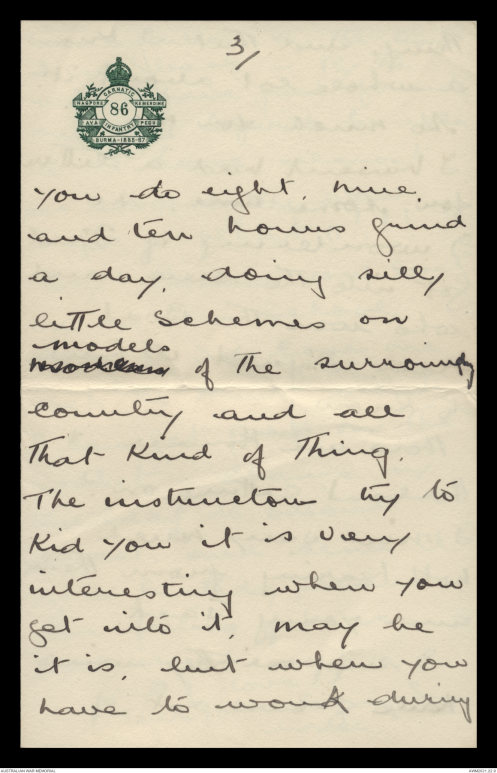 3/
CARNATIC
NAGPORE
KEMENDINE
86
AVA
INFANTRY
PEGU
BURMA·1885-87
you do eight, nine,
and ten hours grind
a day, doing silly
little schemes on
models
of the surrounding
country and all
that kind of thing.
The instructors try to
kid you it is very
interesting when you
get into it, may be
it is, but when you
have to work during
AUSTRALIAN WAR MEMORIAL